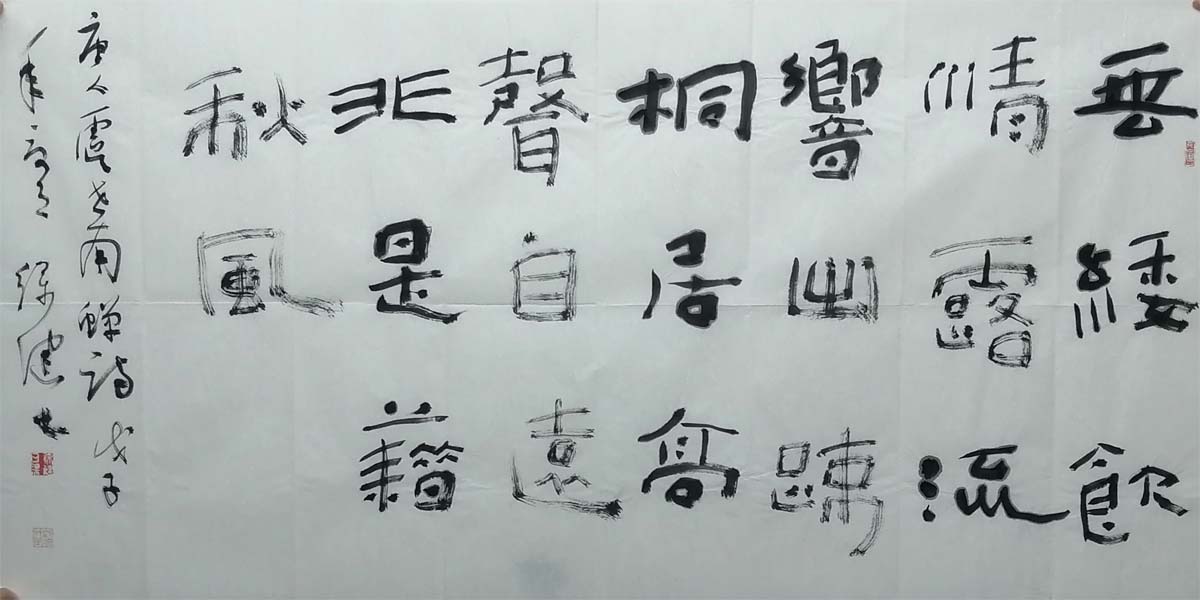 垂緌飲
清露流
響出踈
桐居高
聲自遠
非是藉
秋風
唐人虞世南蟬詩 戊子
年 书